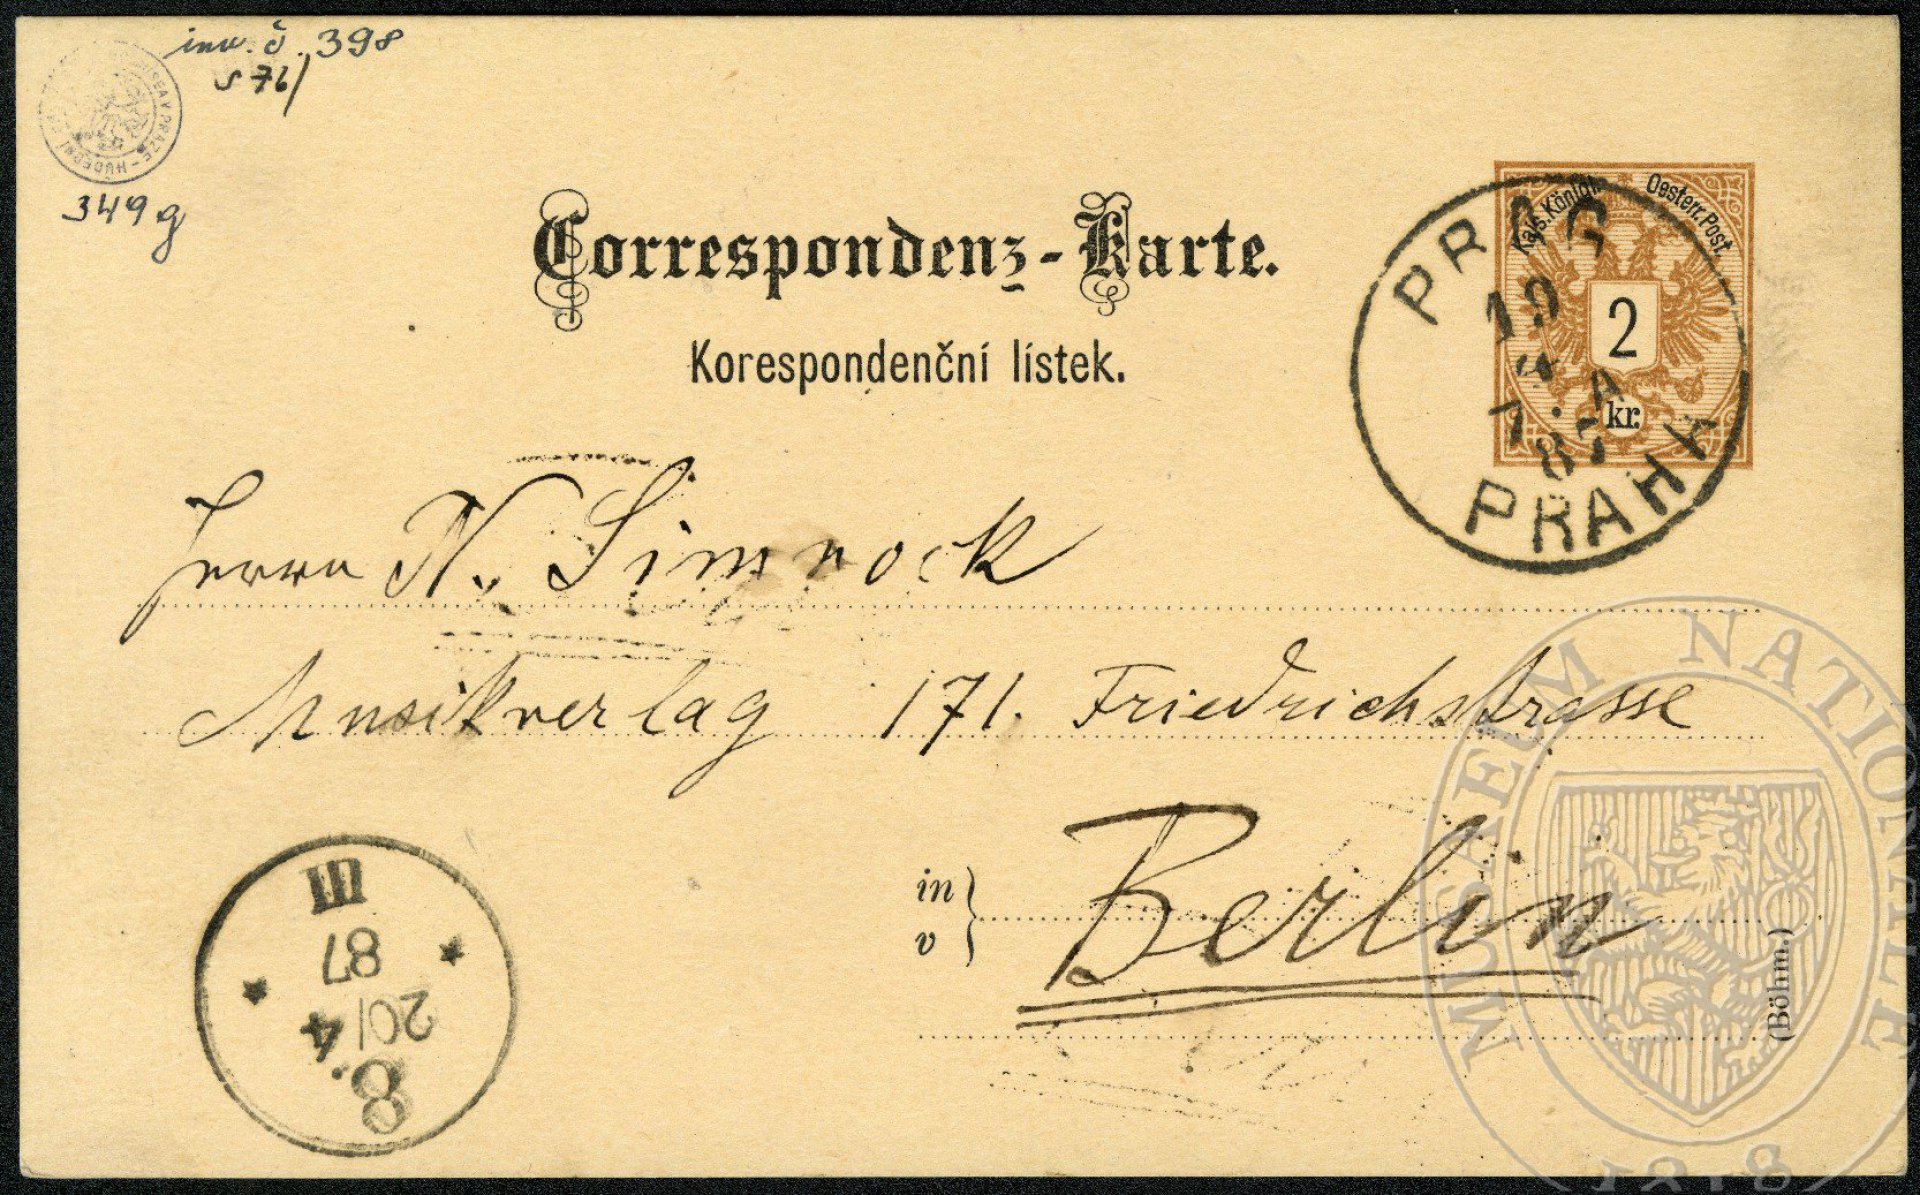 inv. č. 398
s 76/
V PRAZE - HUDEBNÍ
349 g
Correspondenz-Karte.
Korespondenční lístek.
Kais. Königl. Oesterr. Post.
2
kr.
PRAG
19
4
87
PRAHA
Herrn N. Simrock
Musikverlag 171. Friedrichstrasse
in
v
Berlin
(Böhm.)
8.
20/4
87
III
MUSAEUM NATIONALE
1818